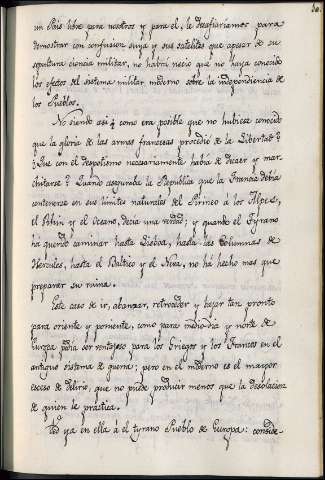 30.
un País libre para nosotros y para el, le desafiariamos para
demostrar con confusion suya y sus satelites que apesar de su
sepultura ciencia militar, no habrá necio que no haya conocido
los efectos del sistema militar moderno sobre la independiencia de
los Pueblos.
No siendo asi ¿ como era posible que no hubiese conocido
que la gloria de las armas francesas procedió de la Libertad?
¿Que con el despotismo necesariamente habia de decaer y mar-
chitarse? Quando aseguraba la Republica que la Francia debia
contenerse en sus limites naturales del Pirineo á los Alpes,
el Rhin y el Oceano, decia una verdad; y quando el Tyrano
ha querido caminar hasta Lisboa, hasta las Columnas de
Hercules, hasta el Baltico y el Niva, no ha hecho mas que
preparar su ruina.
Este caso de ir, abanzar, retroceder y bajar tan pronto
para oriente y poniente, como para mediodia y norte de
Europa podia ser ventajoso para los Griegos y los Francos en el
antiguo sistema de guerra; pero en el moderno es el mayor
exceso de delirio, que no puede producir menos que la desolacion
de quien le practica.
Ved ya en ella á el tyrano Pueblo de Europa: conside-